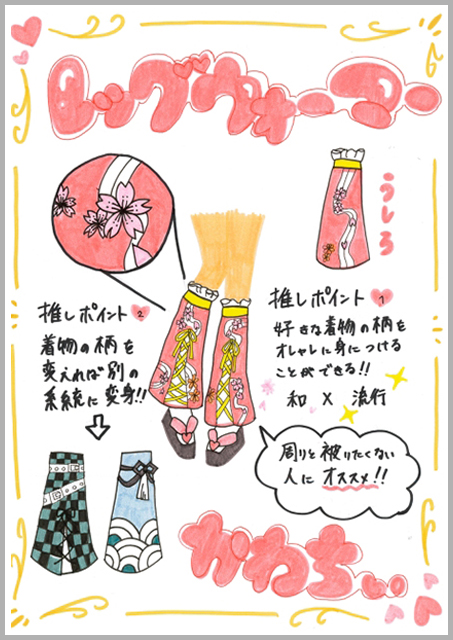 レッグウォーマー
うしろ
推しポイント 1
好きな着物の柄を
オシャレに身につける
ことができる!!
和 × 流行
推しポイント 2
着物の柄を
変えれば別の
系統に変身!!
周りと被りたくない
人にオススメ!!
かわちぃ